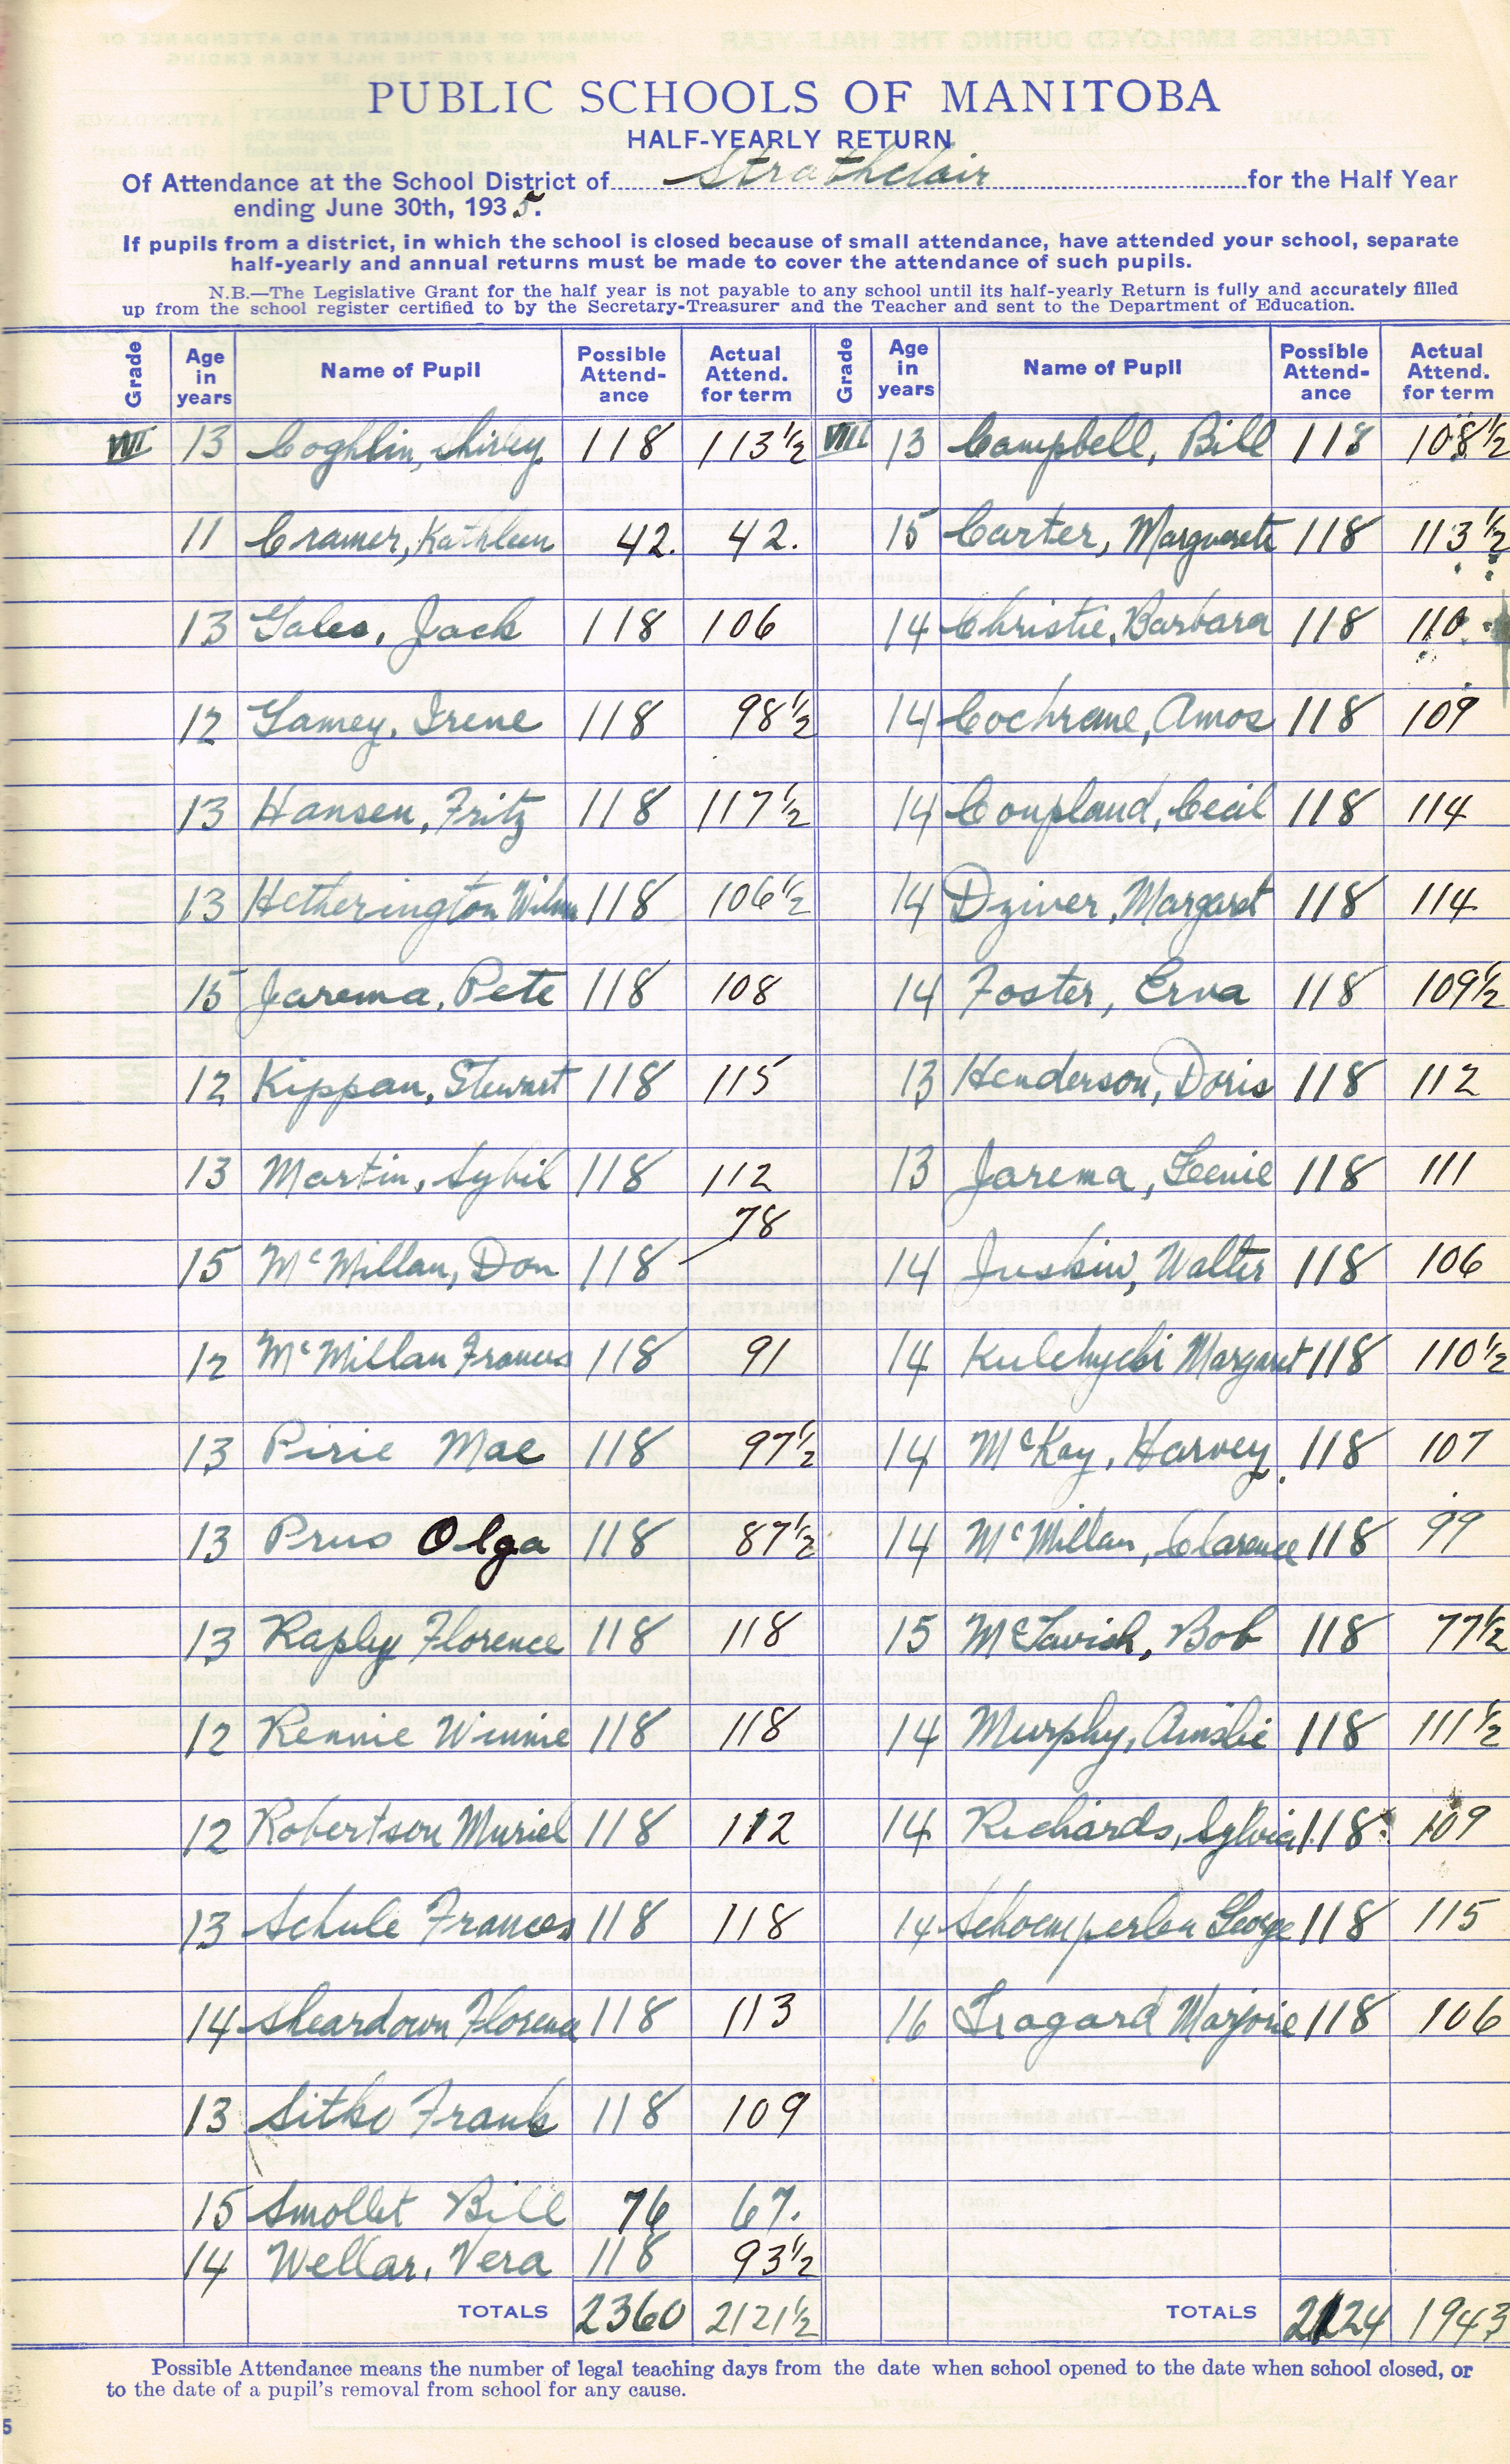 PUBLIC SCHOOLS OF MANITOBA
HALF-YEARLY RETURN
Of Attendance at the School District of Strathclair for the Half Year
ending June 30th, 1935.
If pupils from a district, in which the school is closed because of small attendance, have attended your school, separate
half-yearly and annual returns must be made to cover the attendance of such pupils.
N.B.—The Legislative Grant for the half year is not payable to any school until its half-yearly Return is fully and accurately filled
up from the school register certified to by the Secretary-Treasurer and the Teacher and sent to the Department of Education.
Grade Age in years Name of Pupil Possible Attend-ance Actual Attend. for term Grade Age in years Name of Pupil Possible Attend-ance Actual Attend. for term
VII 13 Coghlin, Shirley 118 113½ VIII 13 Campbell, Bill 118 108½
11 Cramer, Kathleen 42. 42. 15 Carter, Marguerete 118 113½
13 Gales, Jack 118 106 14 Christie, Barbara 118 110
12 Gamey, Irene 118 98½ 14 Cochrane, Amos 118 109
13 Hansen, Fritz 118 117½ 14 Coupland, Cecil 118 114
13 Hetherington Wilma 118 106½ 14 Dziver, Margaret 118 114
15 Jarema, Pete 118 108 14 Foster, Erva 118 109½
12 Kippan, Stewart 118 115 13 Henderson, Doris 118 112
13 Martin, Sybil 118 112 13 Jarema, Geenie 118 111
15 McMillan, Don 118 78 14 Juskiw, Walter 118 106
12 McMillan Frances 118 91 14 Margaret 118 110½
13 Pirie Mae 118 97½ 14 McKay, Harvey. 118 107
13 Prus Olga 118 87½ 14 McMillan, Clarence 118 99
13 Rapley Florence 118 118 15 McTavish, Bob 118 77½
12 Rennie Winnie 118 118 14 Murphy, Ainslie 118 111½
12 Robertson Muriel 118 112 14 Richards, Sylvia 118 109
13 Schule Frances 118 118 14 Schoemperlen George 118 115
14 Sheardown Florence 118 113 16 Tragard Marjorie 118 106
13 Sitko Frank 118 109
15 Smollet Bill 76 67.
14 Wellar, Vera 118 93½
TOTALS 2360 2121½ TOTALS 2124 1943
Possible Attendance means the number of legal teaching days from the date when school opened to the date when school closed, or
to the date of a pupil's removal from school for any cause.
5